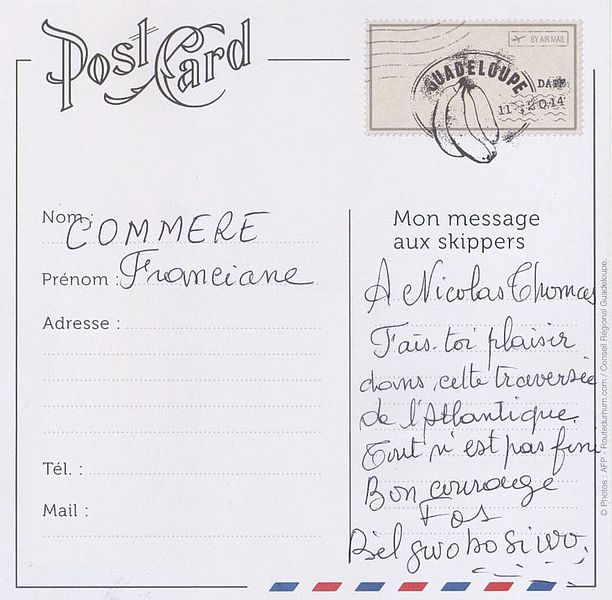 Post Card
BY AIR MAIL
GUADELOUPE
DATE
11 . 2014
Nom : COMMERE
Prénom : Franciane
Adresse :
Tél. :
Mail :
Mon message
aux skippers
A Nicolas Thomas
Fais-toi plaisir
dans cette traversée
de l'Atlantique.
Tout n'est pas fini
Bon courage
Fos
© Photos : AFP - Routedurhum.com / Conseil Régional Guadeloupe.